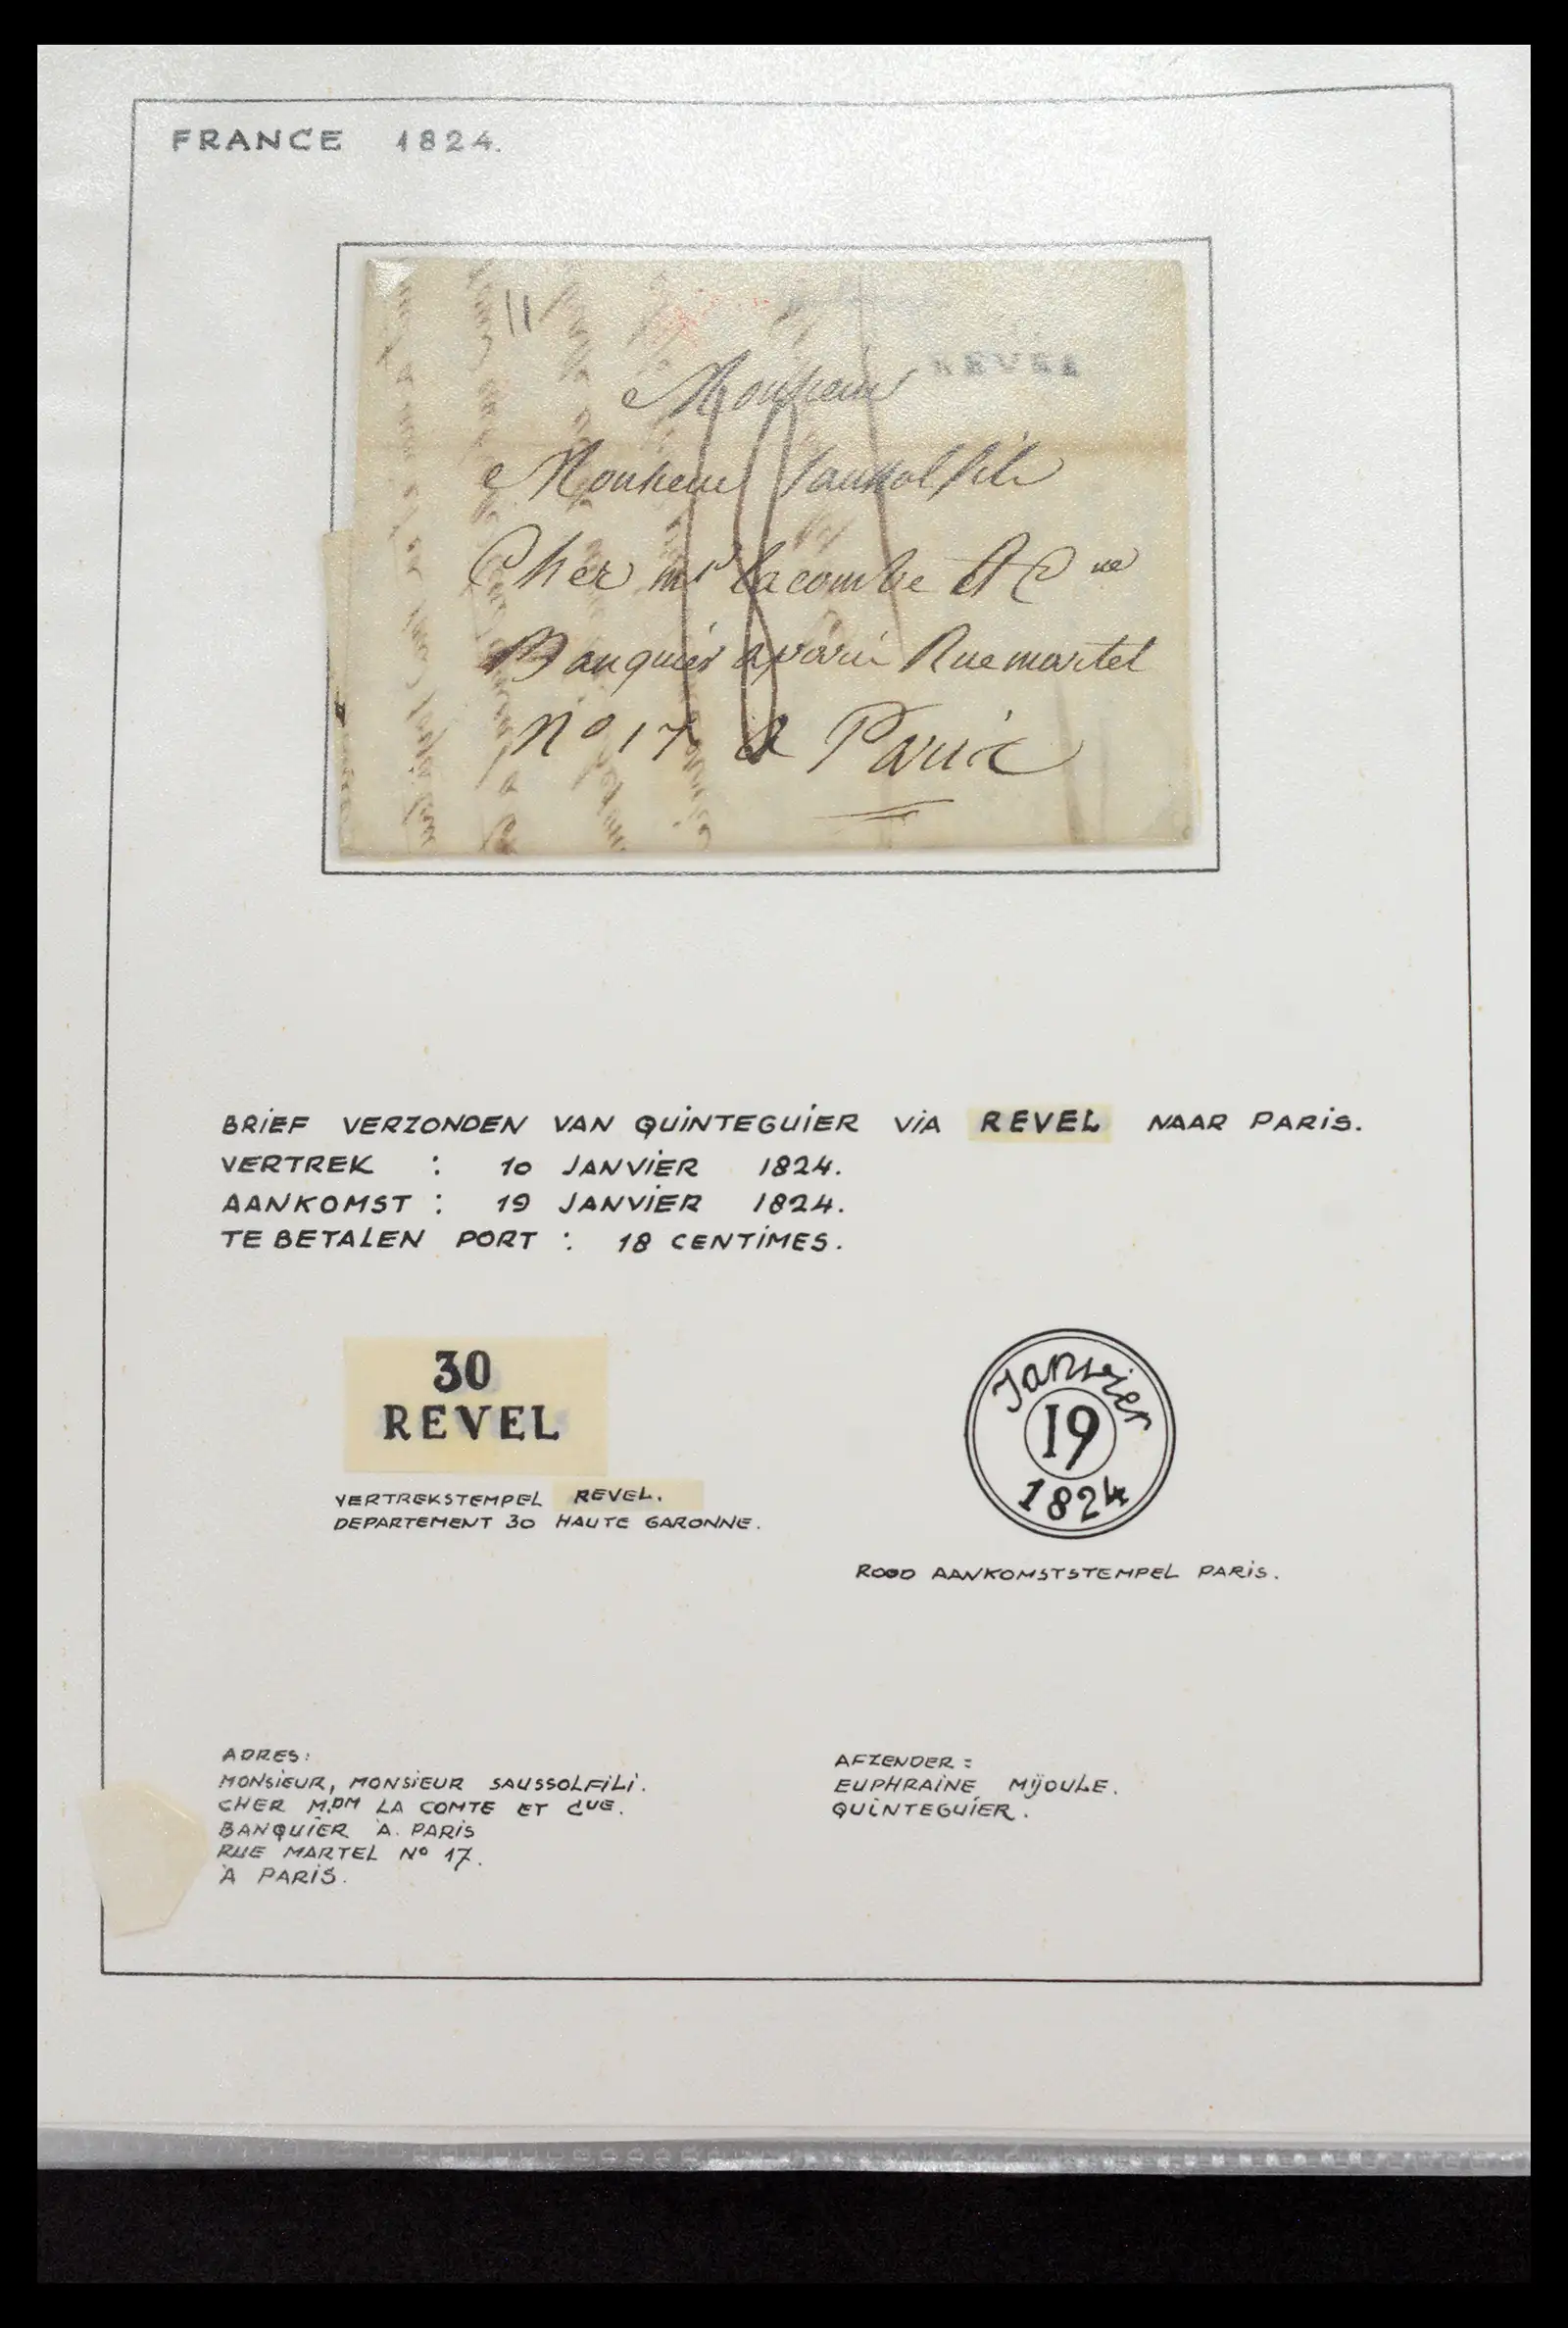 FRANCE 1824.
11
REVEL
Monsieur
Monsieur Saussol fils
Chez mrs Lacombe et Cnie
Banquier a paris Rue martel
No 17 a Paris
18
BRIEF VERZONDEN VAN QUINTEGUIER VIA REVEL NAAR PARIS.
VERTREK : 10 JANVIER 1824.
AANKOMST : 19 JANVIER 1824.
TE BETALEN PORT : 18 CENTIMES.
30
REVEL
VERTREKSTEMPEL REVEL.
DEPARTEMENT 30 HAUTE GARONNE.
Janvier
19
1824
ROOD AANKOMSTSTEMPEL PARIS.
ADRES:
MONSIEUR, MONSIEUR SAUSSOLFILI.
CHER M.DM LA COMTE ET CUE.
BANQUIER À PARIS
RUE MARTEL No 17.
À PARIS.
AFZENDER :
EUPHRAINE MIJOULE.
QUINTEGUIER.